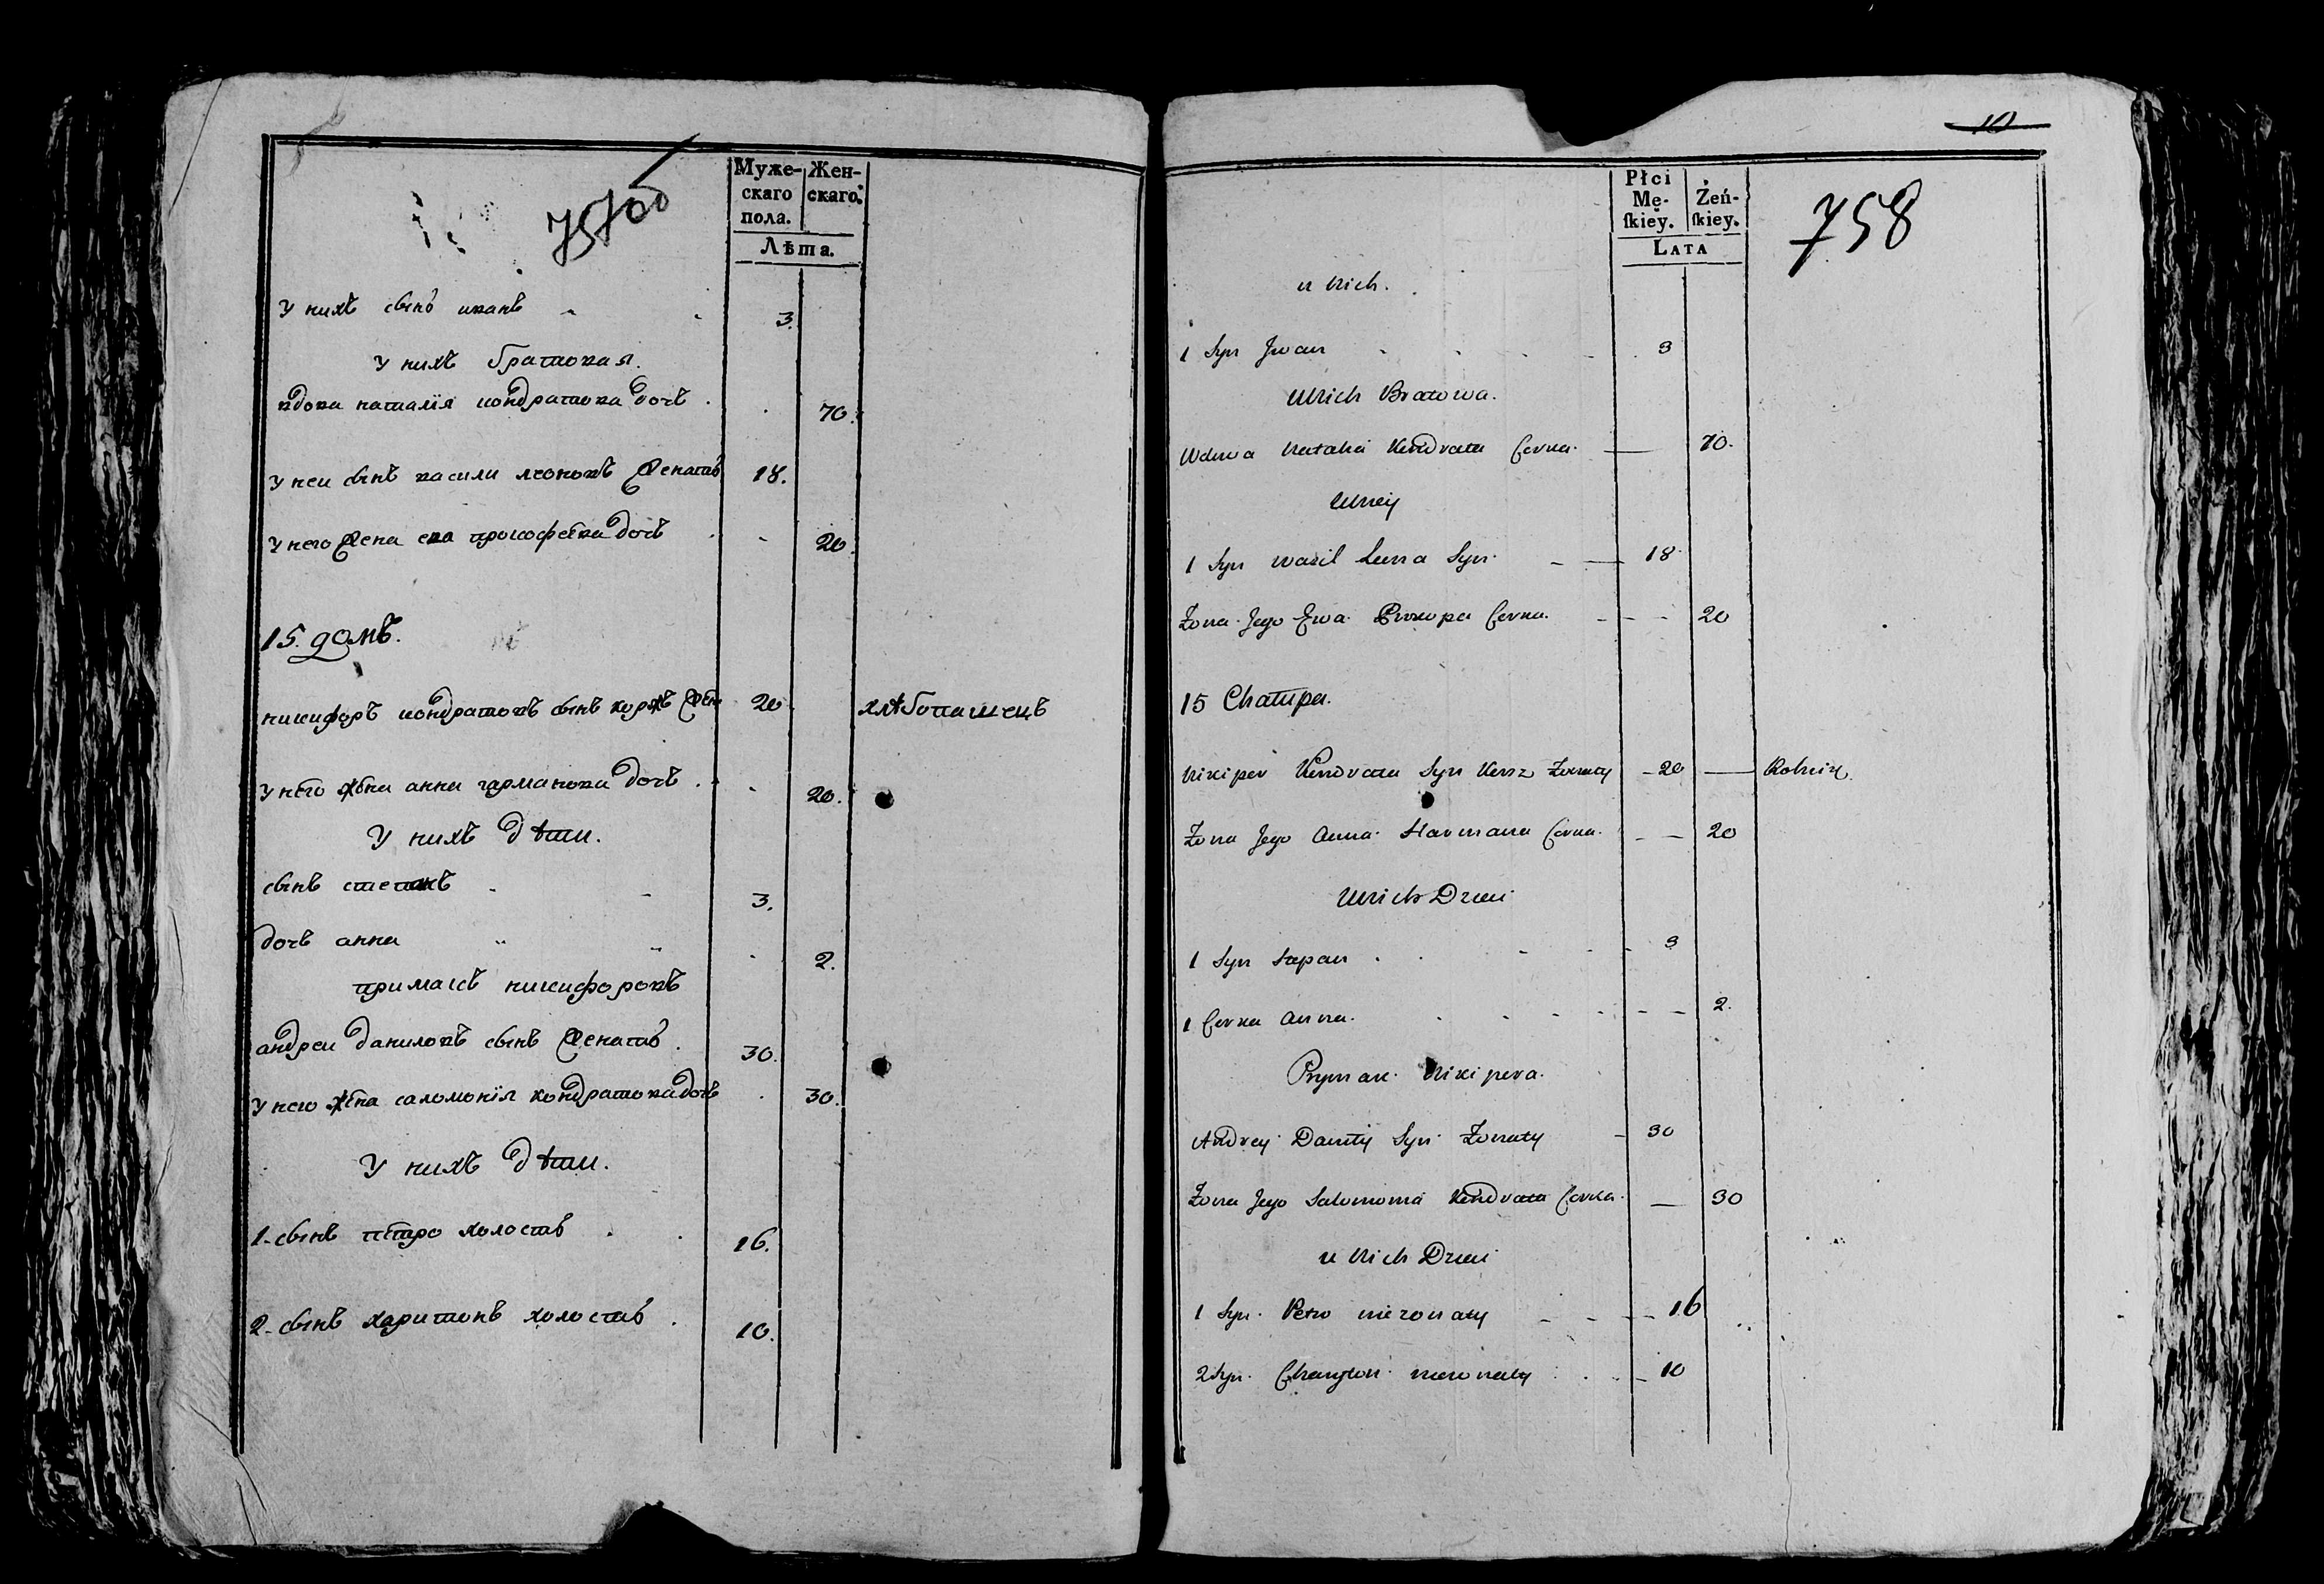 757об
Муже-
скаго
пола.
Жен-
скаго.
Лѣта.
У нихъ сынъ иванъ 3.
У нихъ братовая.
вдова наталія кондратова дочь 70.
У неи сынъ васили леоновъ женатъ 18.
У него жена ева прокофева дочь 20.
15. домъ.
никифоръ кондратовъ сынъ коржъ жен 20 хлѣбопашецъ
У него жена анна гарманова дочь 20.
У нихъ дѣти.
сынъ степанъ 3.
дочь анна 2.
примакъ никифоровъ
андреи даниловъ сынъ женатъ 30.
У него жена саломонія кондратова дочь 30.
У нихъ дѣти.
1. сынъ петро холостъ 16.
2. сынъ харитонъ холостъ 10.
10
Płci
Mę-
ſkiey.
Żeń-
ſkiey.
LATA
758
u Nich.
1 Syn Jwan 3
U Nich Bratowa.
Wdowa Natalia Kondrata Corka. 70.
U Niey
1 Syn Wasil Syn 18
Zona Jego Ewa Prokopa Corka. 20
15 Chałupa.
Nikiper Kondrata Syn Korz Zonaty 20 Rolnik
Zona Jego Anna Harmana Corka. 20
U Nich Dzieci
1 Syn Stepan 3
1 Corka Anna. 2.
Prymak Nikipera.
Andrey Daniły Syn Zonaty 30
Zona Jego Salomonia Kondrata Corka. 30
u Nich Dzieci
1 Syn Petro niezonaty 16
2 Syn Charyton niezonaty 10